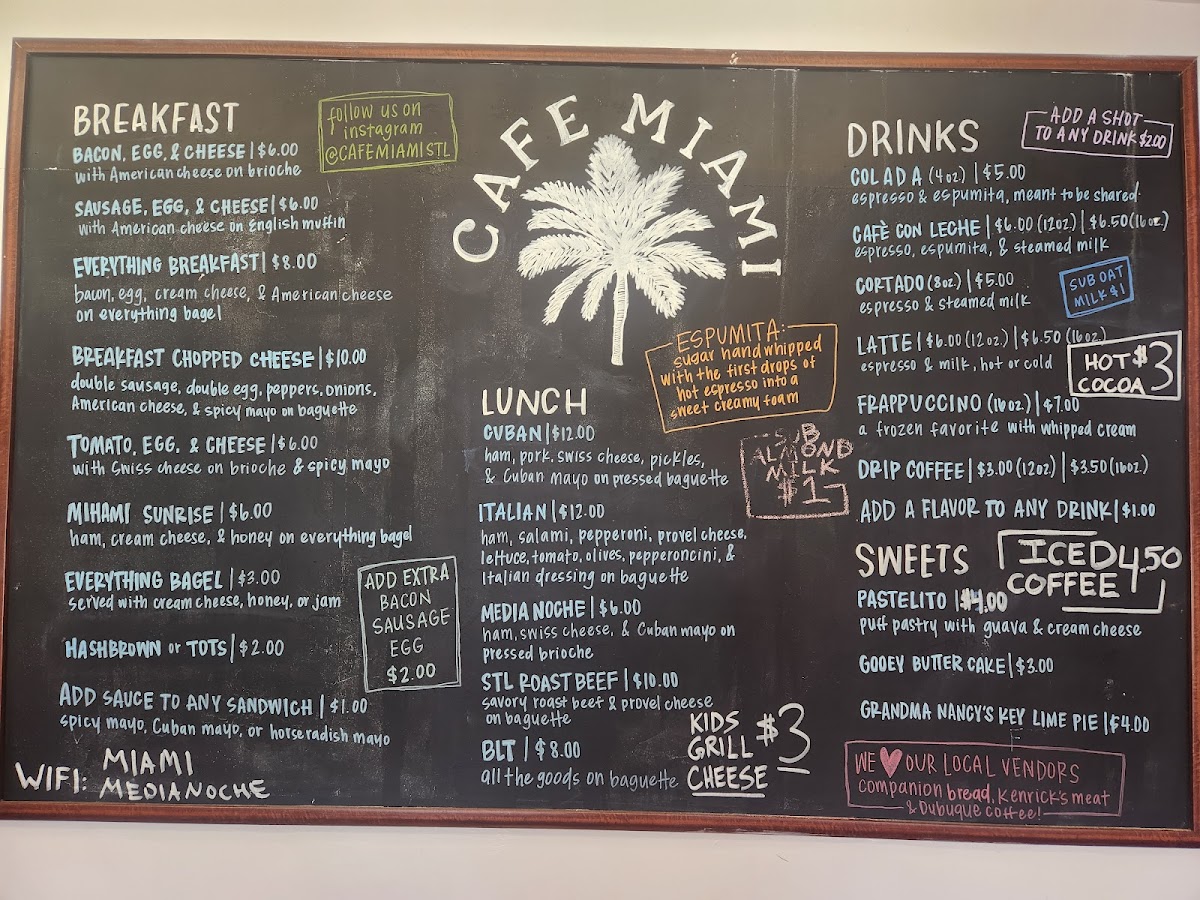 BREAKFAST
BACON, EGG, & CHEESE | $6.00
with American cheese on brioche
SAUSAGE, EGG, & CHEESE | $6.00
with American cheese on English muffin
EVERYTHING BREAKFAST | $8.00
bacon, egg, cream cheese, & American cheese
on everything bagel
BREAKFAST CHOPPED CHEESE | $10.00
double sausage, double egg, peppers, onions,
American cheese, & spicy mayo on baguette
TOMATO, EGG, & CHEESE | $6.00
with Swiss cheese on brioche & spicy mayo
MIHAMI SUNRISE | $6.00
ham, cream cheese, & honey on everything bagel
EVERYTHING BAGEL | $3.00
served with cream cheese, honey, or jam
HASHBROWN or TOTS | $2.00
ADD SAUCE TO ANY SANDWICH | $1.00
spicy mayo, Cuban mayo, or horseradish mayo
WIFI: MIAMI
MEDIANOCHE
follow us on
instagram
@CAFEMIAMISTL
ADD EXTRA
BACON
SAUSAGE
EGG
$2.00
CAFE MIAMI
ESPUMITA:
sugar hand whipped
with the first drops of
hot espresso into a
sweet creamy foam
LUNCH
CUBAN | $12.00
ham, pork, swiss cheese, pickles,
& Cuban mayo on pressed baguette
SUB
ALMOND
MILK
$1
ITALIAN | $12.00
ham, salami, pepperoni, provel cheese,
lettuce, tomato, olives, pepperoncini, &
Italian dressing on baguette
MEDIA NOCHE | $6.00
ham, swiss cheese, & Cuban mayo on
pressed brioche
STL ROAST BEEF | $10.00
savory roast beef & provel cheese
on baguette
BLT | $8.00
all the goods on baguette
KIDS
GRILL
CHEESE
$3
DRINKS
ADD A SHOT
TO ANY DRINK $2.00
COLADA (4oz) | $5.00
espresso & espumita, meant to be shared
CAFÈ CON LECHE | $6.00 (12oz) | $6.50 (16oz)
espresso, espumita, & steamed milk
CORTADO (8oz) | $5.00
espresso & steamed milk
SUB OAT
MILK $1
LATTE | $6.00 (12oz) | $6.50 (16oz)
espresso & milk, hot or cold
HOT $3
COCOA
FRAPPUCCINO (16oz) | $7.00
a frozen favorite with whipped cream
DRIP COFFEE | $3.00 (12oz) | $3.50 (16oz)
ADD A FLAVOR TO ANY DRINK | $1.00
SWEETS
ICED 4.50
COFFEE
PASTELITO | $4.00
puff pastry with guava & cream cheese
GOOEY BUTTER CAKE | $3.00
GRANDMA NANCY'S KEY LIME PIE | $4.00
WE ♥ OUR LOCAL VENDORS
companion bread, Kenrick's meat
& Dubuque coffee!